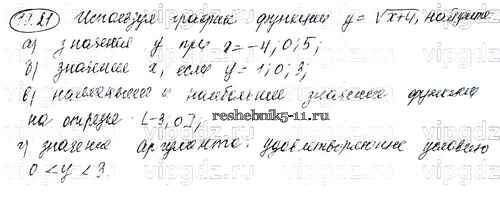 13.21 Используя график функции y = √x+4, найдите:
а) значения y при x = -4; 0; 5;
б) значения x, если y = 1; 0; 3;
в) наименьшее и наибольшее значения функции
на отрезке [-3, 0];
reshebnik5-11.ru
г) значения аргумента, удовлетворяющие условию
0 < y < 3.